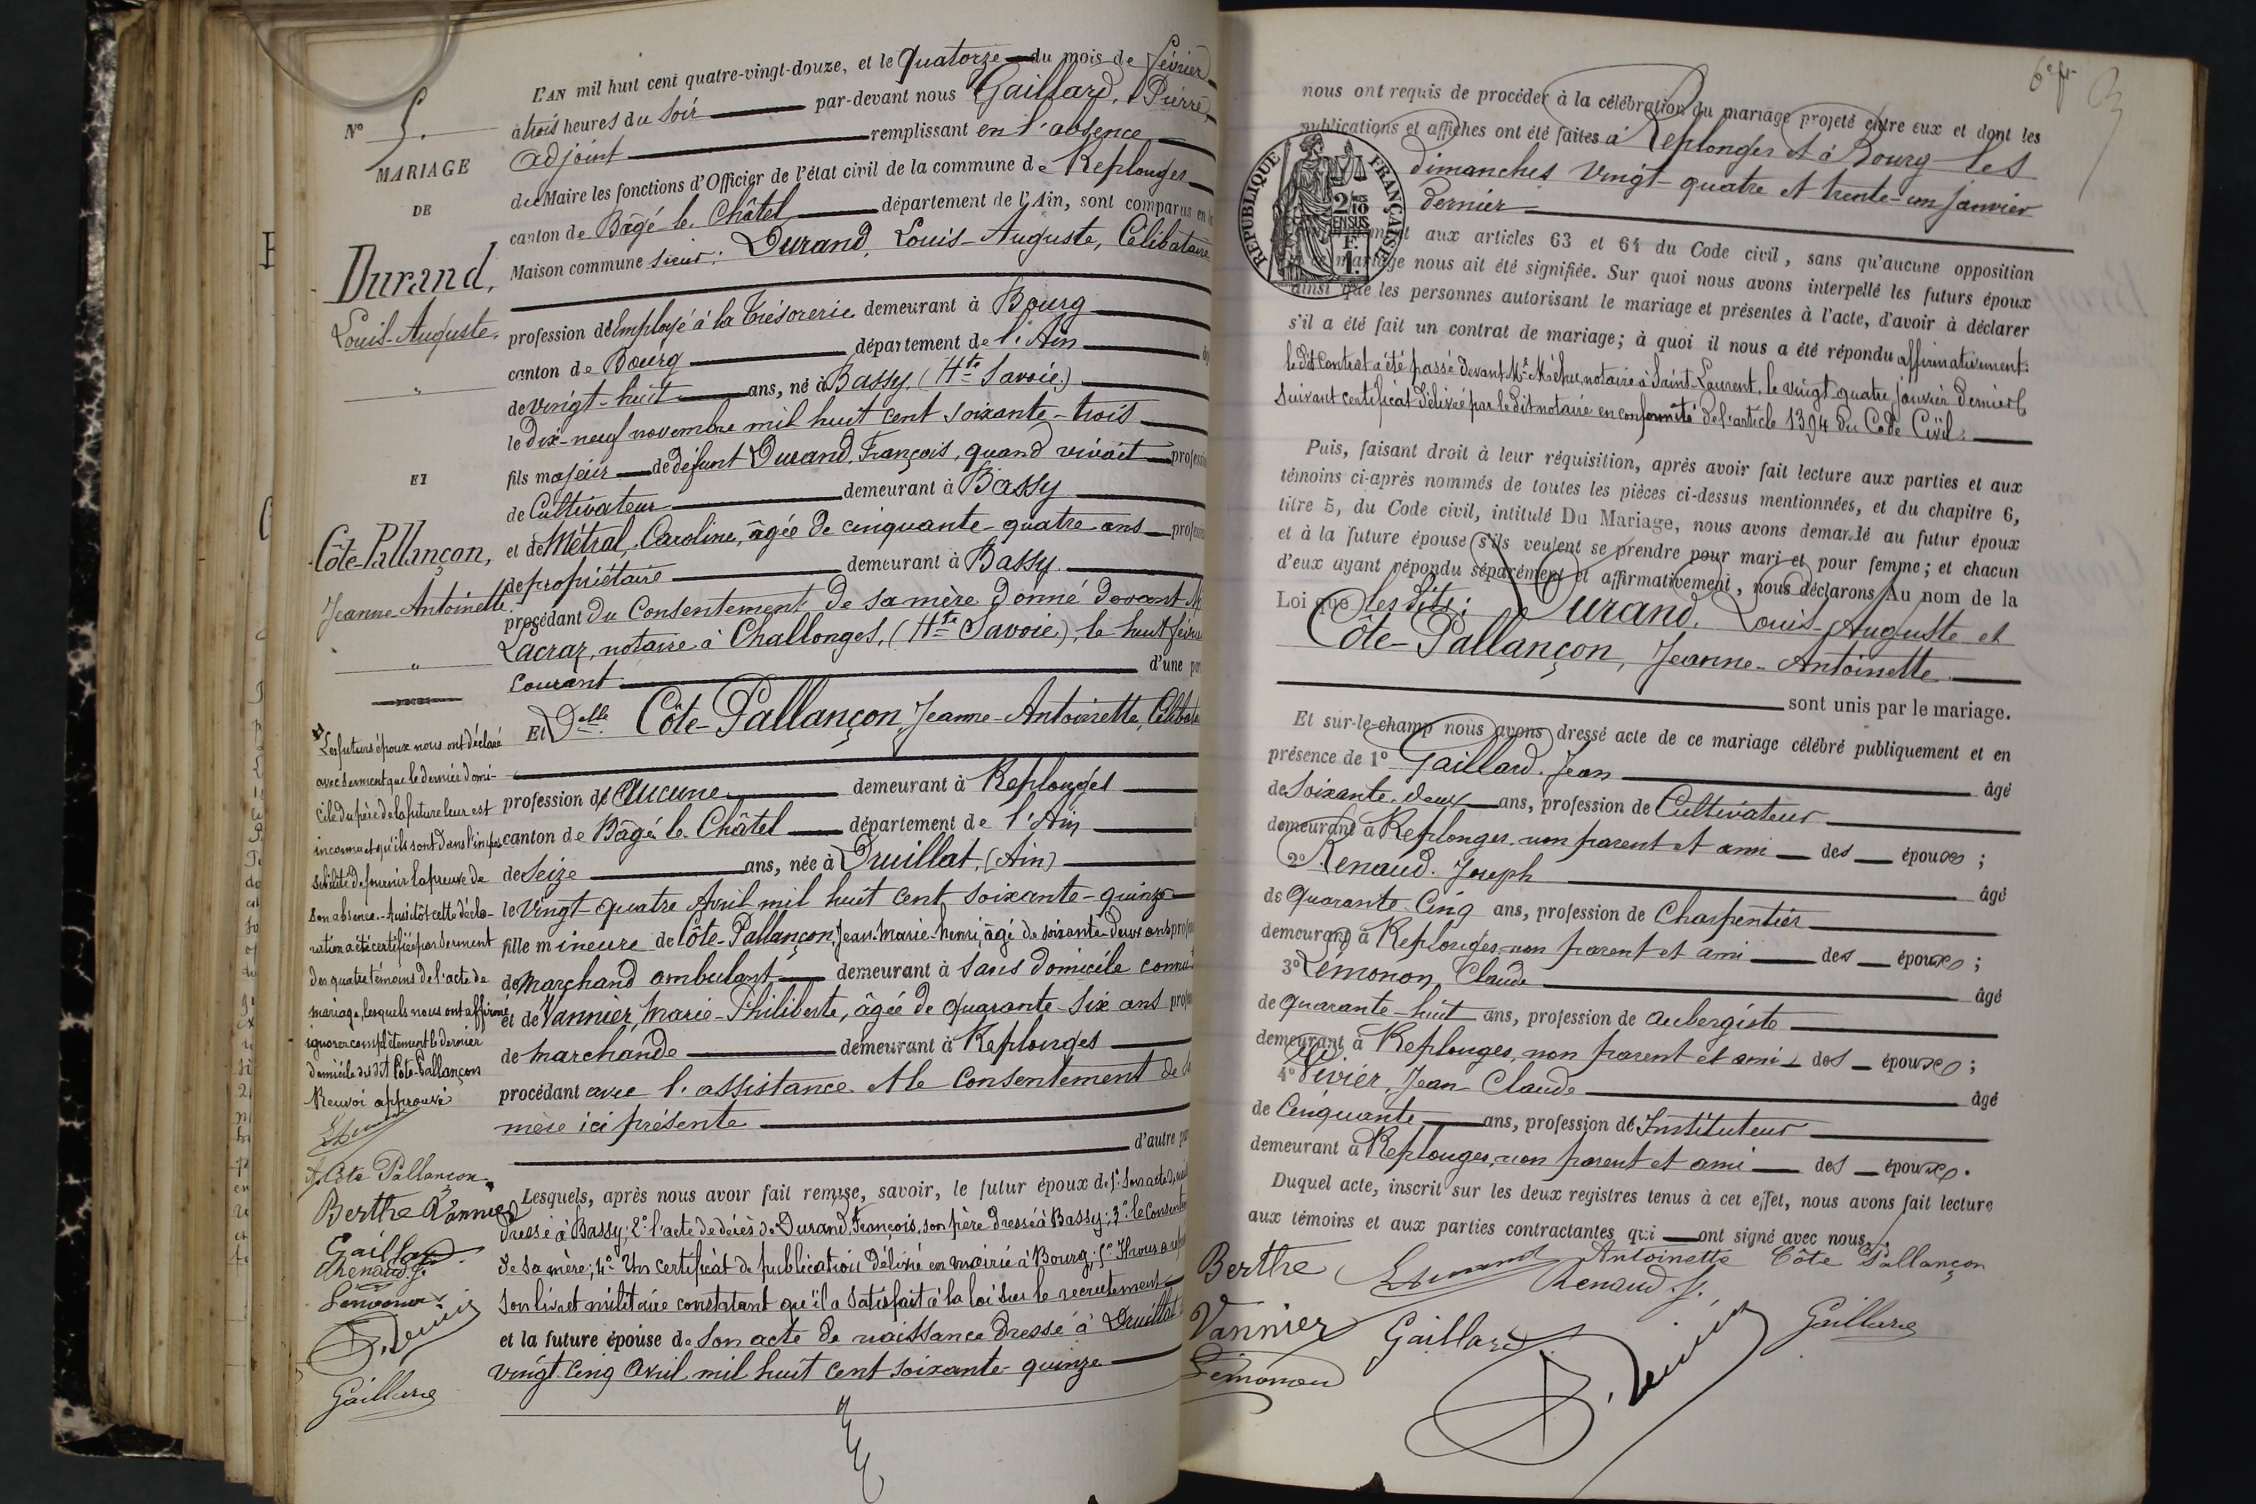 L'AN mil huit cent quatre-vingt-douze, et le quatorze du mois de février
à trois heures du soir par-devant nous Gaillard, Pierre,
adjoint remplissant en l'absence
du Maire les fonctions d'Officier de l'état civil de la commune de Replonges
canton de Bâgé-le-Châtel département de l'Ain, sont comparus en la
Maison commune sieur: Durand, Louis-Auguste, Célibataire
profession d'Employé à la Trésorerie demeurant à Bourg
canton de Bourg département de l'Ain
de vingt-huit ans, né à Bassy, (Hte Savoie)
le dix-neuf novembre mil huit cent soixante-trois
fils majeur de défunt Durand, François, quand vivait
de Cultivateur demeurant à Bassy
et de Métral, Caroline, âgée de cinquante-quatre ans
de propriétaire demeurant à Bassy
procédant du Consentement de sa mère donné devant Me
Lacraz, notaire à Challonges, (Hte Savoie), le huit
Courant d'une
Et Delle Côte-Pallançon, Jeanne-Antoinette,
profession de aucune demeurant à Replonges
canton de Bâgé-le-Châtel département de l'Ain
de Seize ans, née à Druillat, (Ain)
le vingt-quatre Avril mil huit cent soixante-quinze
fille mineure de Côte-Pallançon, Jean-Marie-henri, âgé de soixante-deux ans
de marchand ambulant demeurant à sans domicile connu
et de Vannier, Marie-Philiberte, âgée de quarante-six ans
de marchande demeurant à Replonges
procédant avec l'assistance et le Consentement de
mère ici présente
d'autre
Lesquels, après nous avoir fait remise, savoir, le futur époux de 1° Son acte de
dressé à Bassy; 2° l'acte de décès de Durand, François, son père dressé à Bassy; 3° le
de sa mère; 4° Un certificat de publication délivré en mairie à Bourg; 5° Il nous a
son livret militaire constatant qu'il a satisfait à la loi sur le recrutement
et la future épouse de Son acte de naissance dressé à Druillat
vingt-cinq avril mil huit cent soixante-quinze
N° 5.
MARIAGE
DE
Durand,
Louis-Auguste.
"
ET
Côte-Pallançon,
Jeanne-Antoinette.
"
Les futurs époux nous ont déclaré
avec serment que le dernier domi-
cile du père de la future leur est
inconnu et qu'ils sont dans l'impos
sibilité de fournir la preuve de
son absence. Aussitôt cette décla-
ration a été certifiée par serment
des quatre témoins de l'acte de
mariage, lesquels nous ont affirmé
ignorer complètement le dernier
domicile du dit Côte-Pallançon
Renvoi approuvé
LDurand
A. Côte Pallançon
Berthe Vannier
Gaillard
Renaud J.
Lémonon
Gaillard
6e ft
nous ont requis de procéder à la célébration du mariage projeté entre eux et dont les
publications et affiches ont été faites à Replonges et à Bourg les
dimanches vingt-quatre et trente-un janvier
dernier
aux articles 63 et 64 du Code civil, sans qu'aucune opposition
mariage nous ait été signifiée. Sur quoi nous avons interpellé les futurs époux
ainsi que les personnes autorisant le mariage et présentes à l'acte, d'avoir à déclarer
s'il a été fait un contrat de mariage; à quoi il nous a été répondu affirmativement:
le dit Contrat a été passé devant Me Méhu, notaire à Saint-Laurent, le vingt quatre janvier dernier
suivant certificat délivré par le dit notaire en conformité de l'article 1394 du Code Civil.
Puis, faisant droit à leur réquisition, après avoir fait lecture aux parties et aux
témoins ci-après nommés de toutes les pièces ci-dessus mentionnées, et du chapitre 6,
titre 5, du Code civil, intitulé Du Mariage, nous avons demandé au futur époux
et à la future épouse s'ils veulent se prendre pour mari et pour femme; et chacun
d'eux ayant répondu séparément et affirmativement, nous déclarons Au nom de la
Loi que les dits: Durand, Louis-Auguste et
Côte-Pallançon, Jeanne-Antoinette
sont unis par le mariage.
Et sur-le-champ nous avons dressé acte de ce mariage célébré publiquement et en
présence de 1° Gaillard, Jean âgé
de Soixante-deux ans, profession de Cultivateur
demeurant à Replonges, non parent et ami des époux;
2° Renaud, Joseph âgé
de quarante-Cinq ans, profession de Charpentier
demeurant à Replonges, non parent et ami des époux;
3° Lémonon, Claude âgé
de quarante-huit ans, profession de aubergiste
demeurant à Replonges, non parent et ami des époux;
4° Vivier, Jean-Claude âgé
de Cinquante ans, profession d'Instituteur
demeurant à Replonges, non parent et ami des époux.
Duquel acte, inscrit sur les deux registres tenus à cet effet, nous avons fait lecture
aux témoins et aux parties contractantes qui ont signé avec nous.
Berthe LDurand Antoinette Côte Pallançon
Renaud. J.
Vannier Gaillard Gaillard
Lémonon
RÉPUBLIQUE FRANÇAISE
2/10
EN SUS
F.
1.